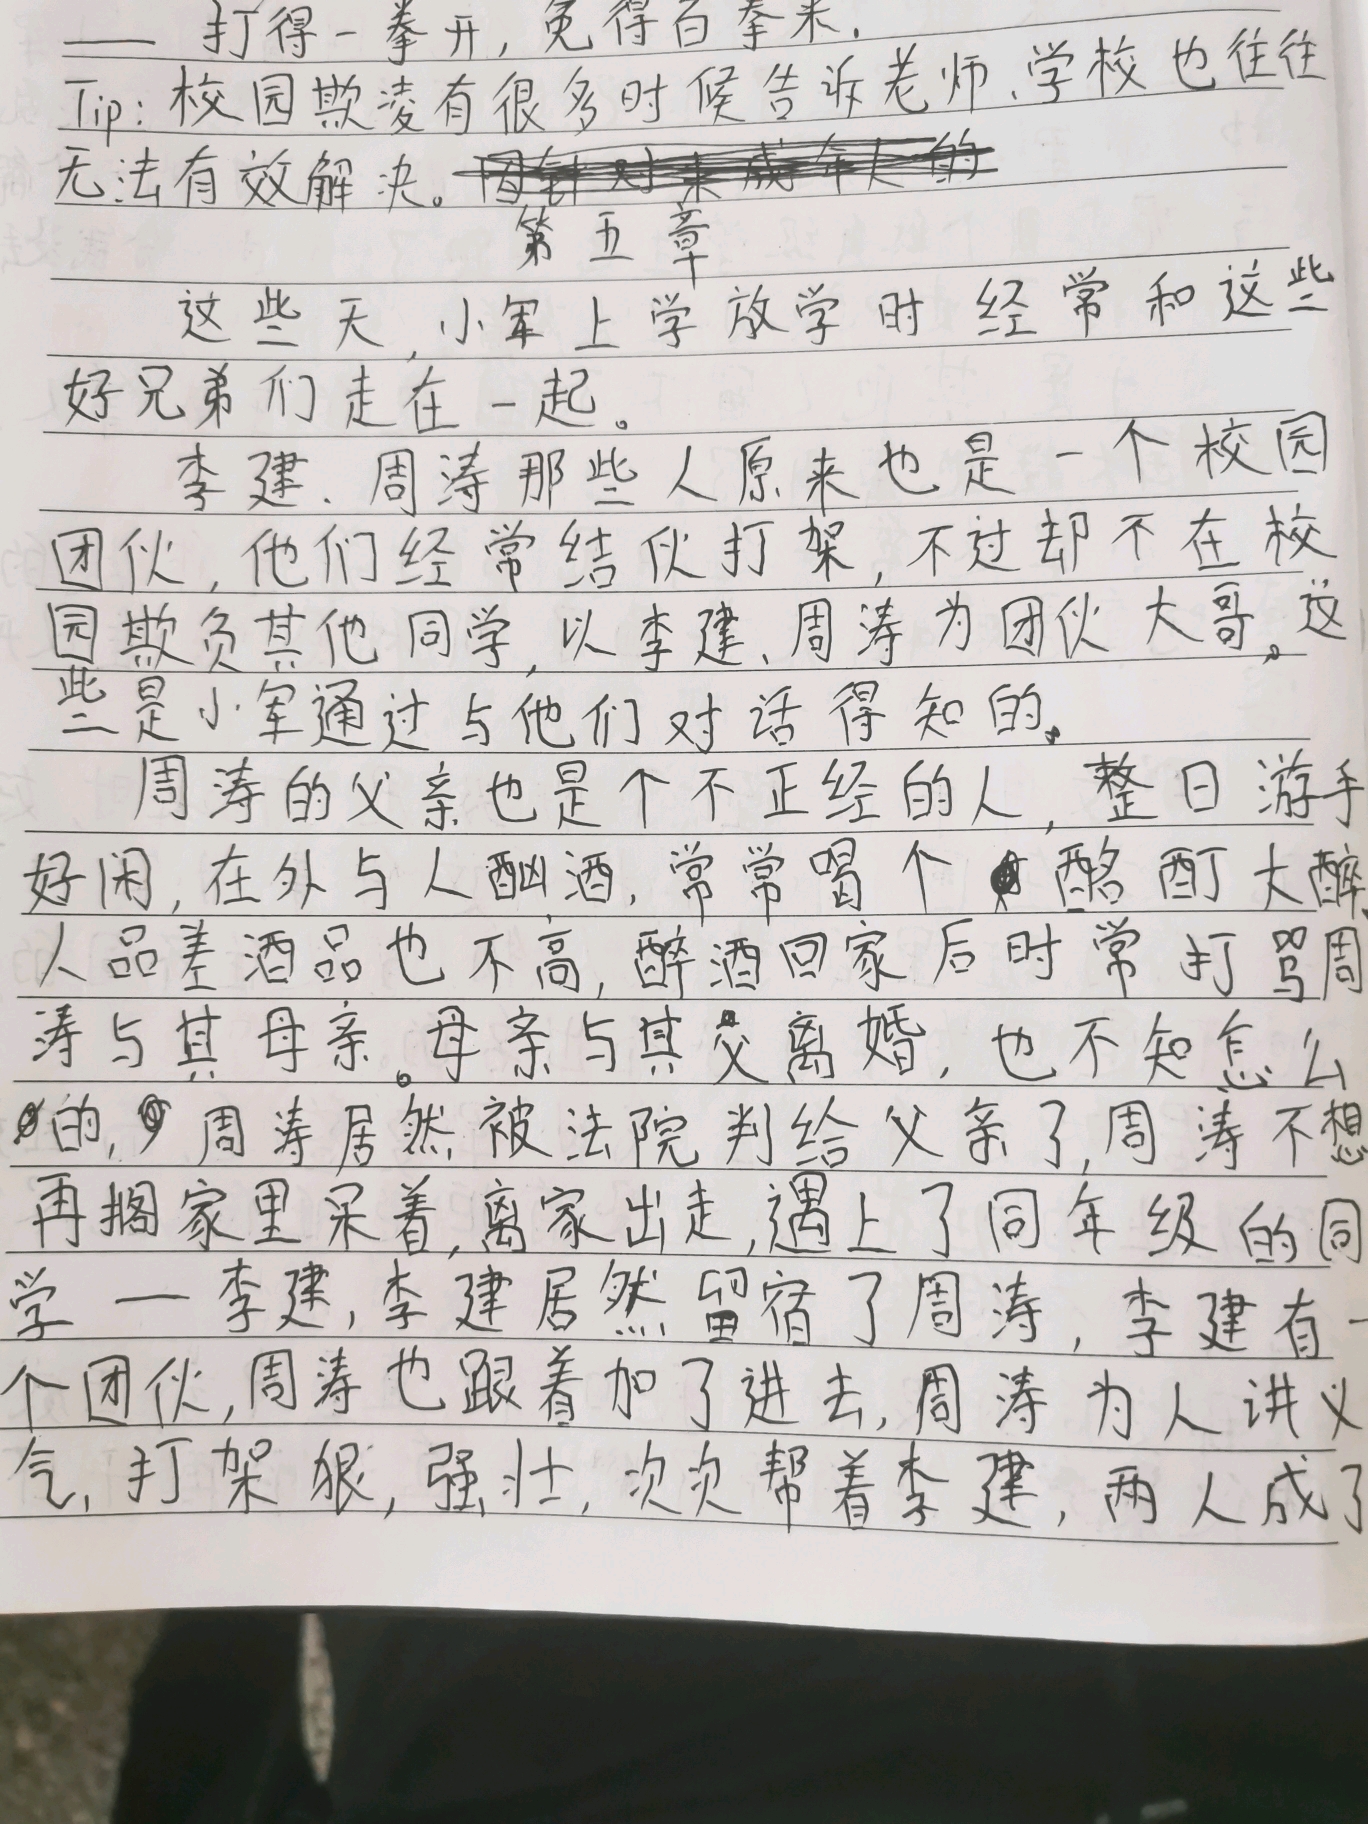 —— 打得一拳开，免得百拳来.
Tip：校园欺凌有很多时候告诉老师、学校也往往
无法有效解决。因针对未成年人的
第五章
这些天，小军上学放学时经常和这些
好兄弟们走在一起。
李建、周涛那些人原来也是一个校园
团伙，他们经常结伙打架，不过却不在校
园欺负其他同学，以李建、周涛为团伙大哥。这
些是小军通过与他们对话得知的。
周涛的父亲也是个不正经的人，整日游手
好闲，在外与人酗酒，常常喝个酩酊大醉，
人品差酒品也不高，醉酒回家后时常打骂周
涛与其母亲。母亲与其父离婚，也不知怎么
的，周涛居然被法院判给父亲了，周涛不想
再搁家里呆着，离家出走，遇上了同年级的同
学一李建，李建居然留宿了周涛，李建有一
个团伙，周涛也跟着加了进去，周涛为人讲义
气，打架狠，强壮，次次帮着李建，两人成了